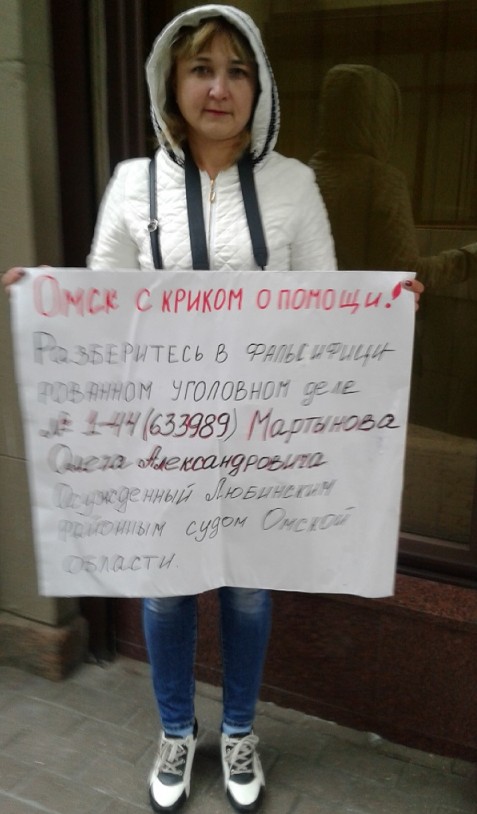 ОМСК С КРИКОМ О ПОМОЩИ!
РАЗБЕРИТЕСЬ В ФАЛЬСИФИЦИ
РОВАННОМ УГОЛОВНОМ деле
№ 1-44(633989) Мартынова
Олега Александровича
Осужденный Любинским
районным судом Омской
области.